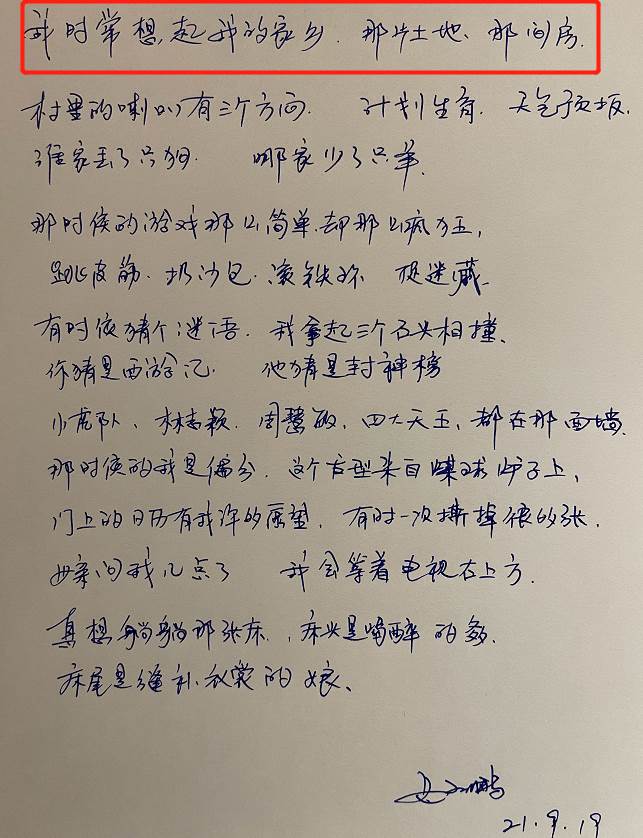 我时常想起我的家乡.那片土地、那间房.
村里的喇叭有三个方向. 计划生育. 天气预报.
谁家丢了只狗. 哪家少了只羊.
那时候的游戏那么简单.却那么疯狂,
跳皮筋.扔沙包.滚铁环 捉迷藏.
有时候猜个谜语.我拿起三个石头相撞、
你猜是西游记. 他猜是封神榜
小虎队、林志颖、周慧敏、四大天王、都在那面墙.
那时候的我是偏分.这个发型来自煤球炉子上,
门上的日历有我许的愿望.有时一次撕掉很多张.
母亲问我几点了 我会等着电视右上方.
真想躺躺那张床.,床头是喝醉的爹.
床尾是缝补衣裳的娘、
21.9.19